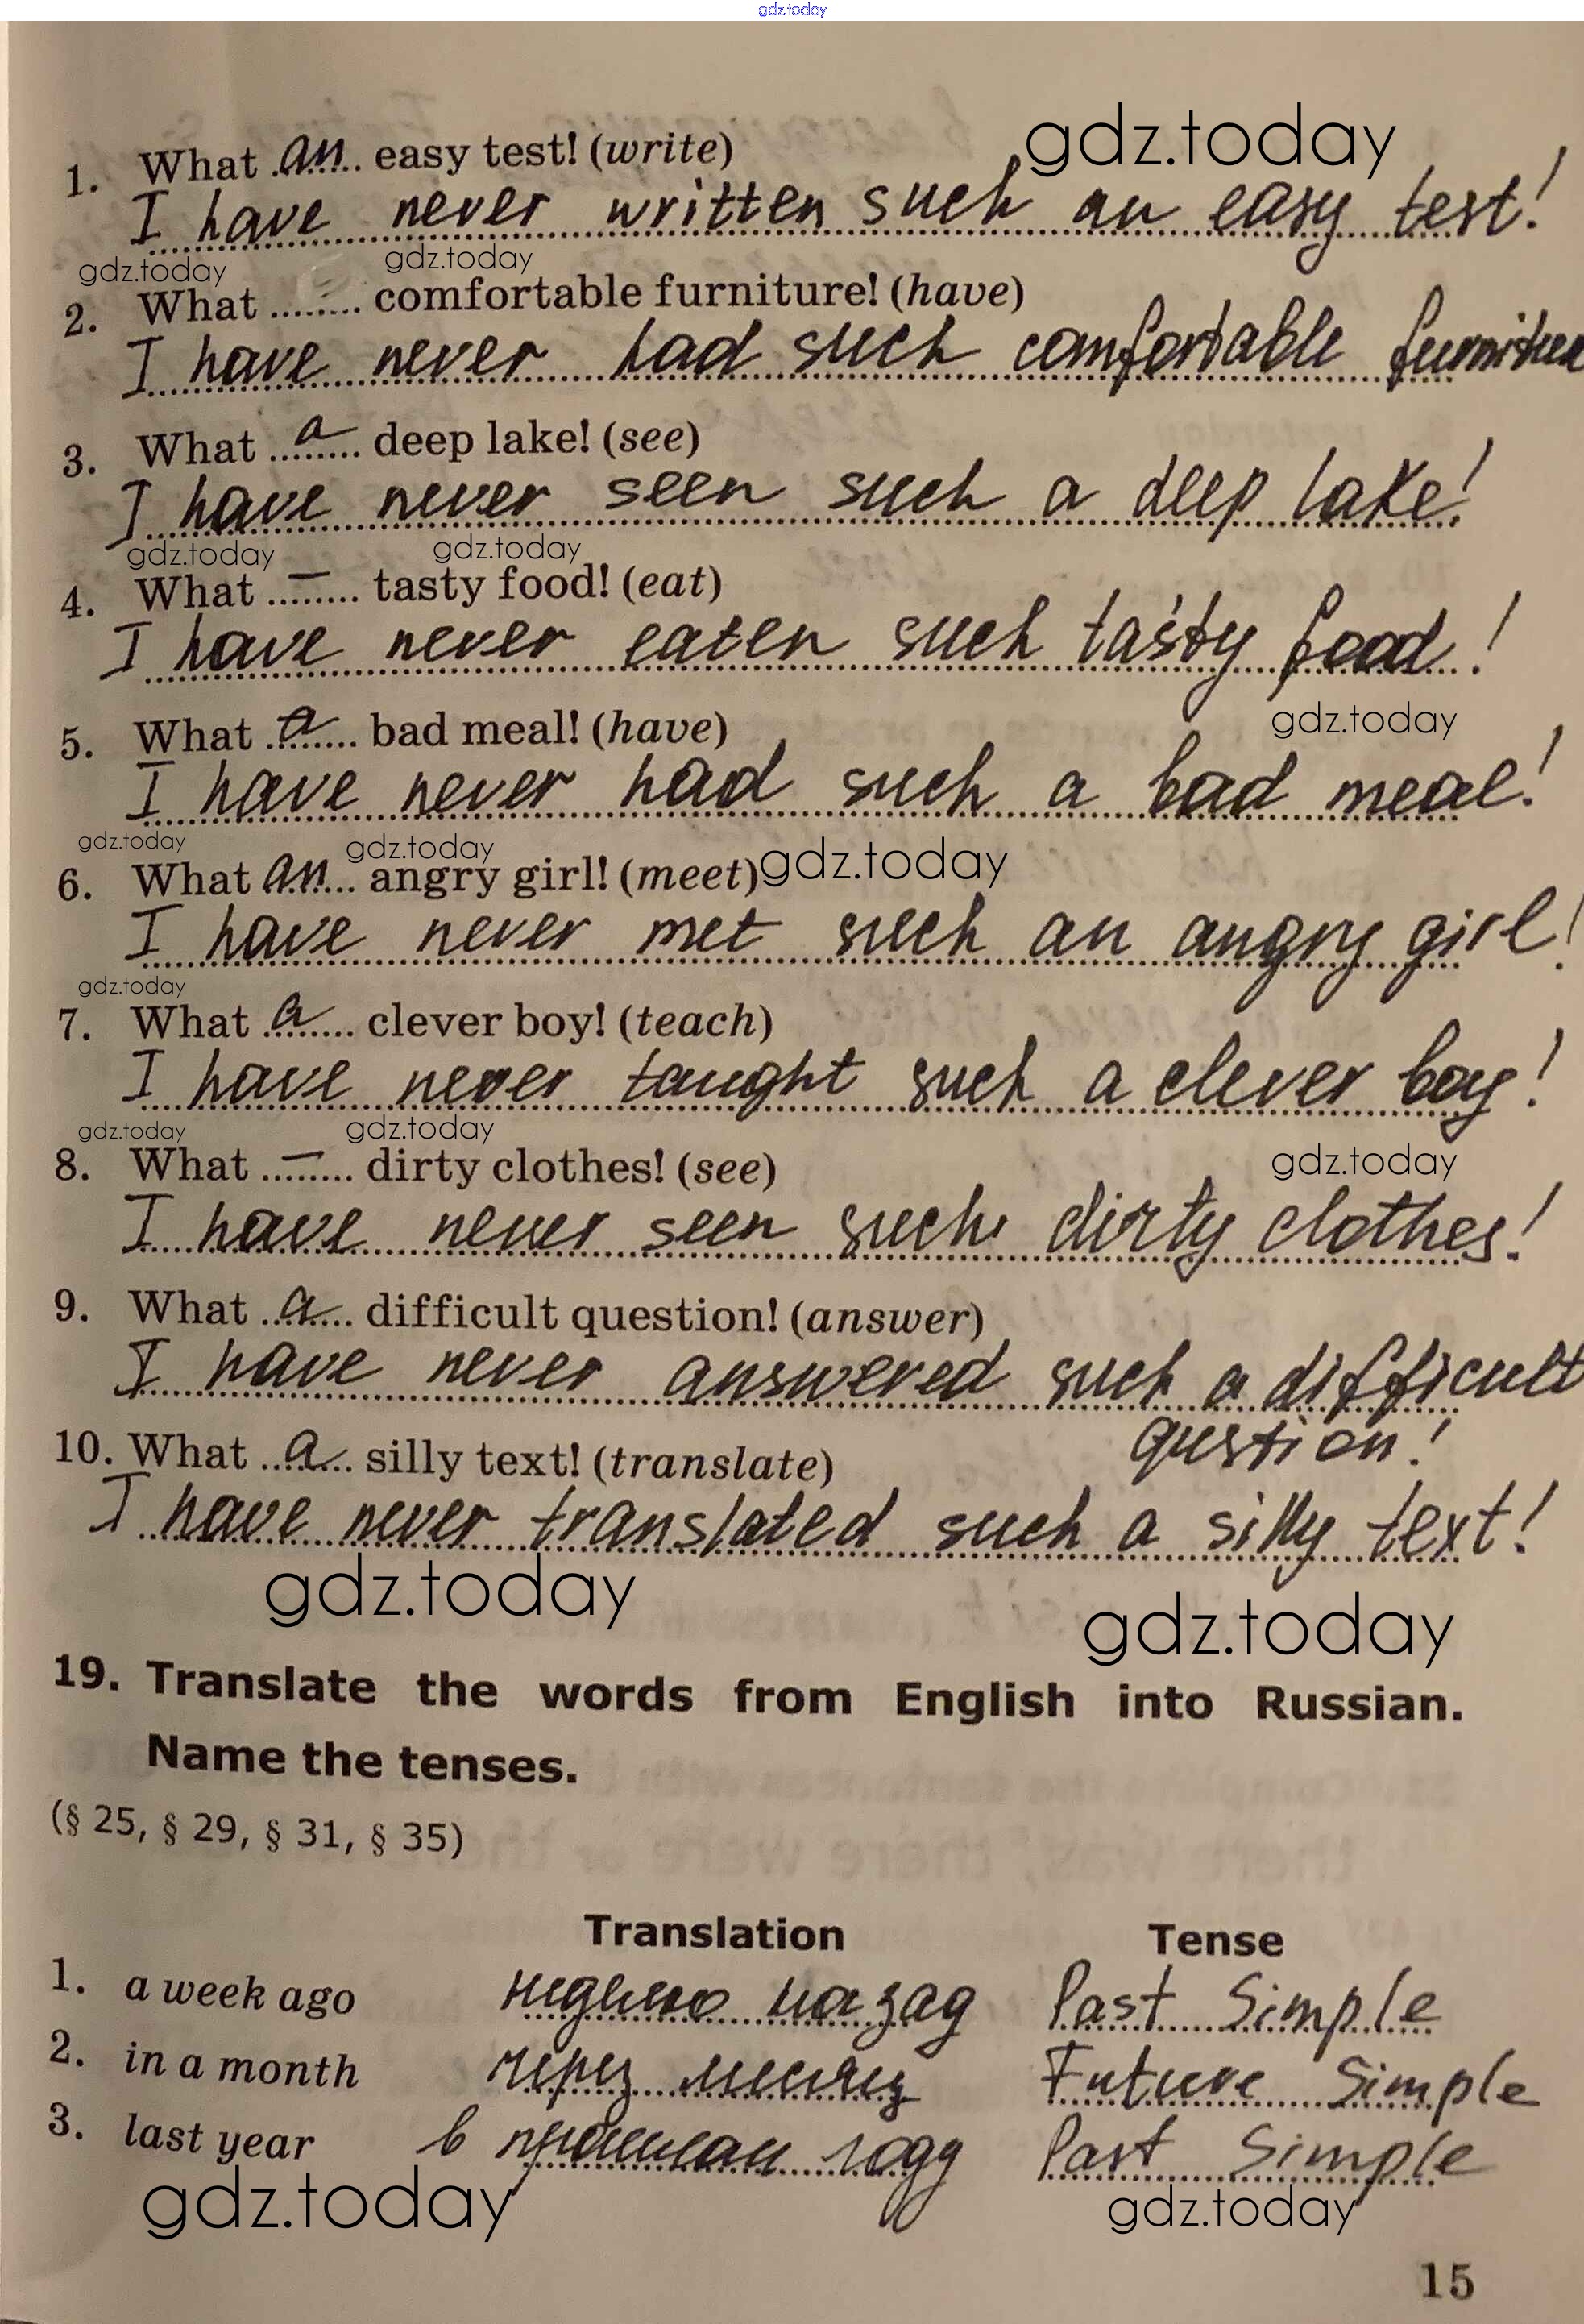 gdz.today
gdz.today
1. What ..an.. easy test! (write)
I have never written such an easy test!
gdz.today gdz.today
2. What ........ comfortable furniture! (have)
I have never had such comfortable furniture
3. What ..a.. deep lake! (see)
I have never seen such a deep lake!
gdz.today gdz.today
4. What ..–.. tasty food! (eat)
I have never eaten such tasty food!
gdz.today
5. What ..a.. bad meal! (have)
I have never had such a bad meal!
gdz.today gdz.today gdz.today
6. What an... angry girl! (meet)
I have never met such an angry girl!
gdz.today
7. What ..a.. clever boy! (teach)
I have never taught such a clever boy!
gdz.today gdz.today
gdz.today
8. What ..–.. dirty clothes! (see)
I have never seen such dirty clothes!
9. What ..a.. difficult question! (answer)
I have never answered such a difficult
question!
10. What ..a.. silly text! (translate)
I have never translated such a silly text!
gdz.today gdz.today
19. Translate the words from English into Russian.
Name the tenses.
(§ 25, § 29, § 31, § 35)
Translation Tense
1. a week ago неделю назад Past Simple
2. in a month через месяц Future Simple
3. last year в прошлом году Past Simple
gdz.today gdz.today
15